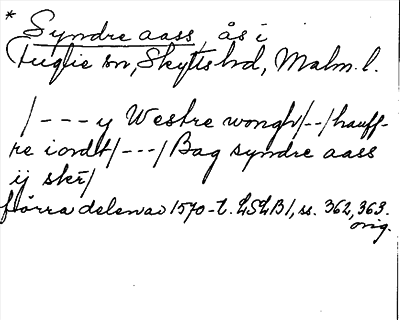 * Syndre aass, ås i
Fuglie sn, Skytts hd, Malm. l.
/--- y Westre wongh/--/hauff-
re iordt/---/Bag syndre aass
ij skr/
förra delen av 1570-t. LSLB 1, ss. 362, 363.
orig.